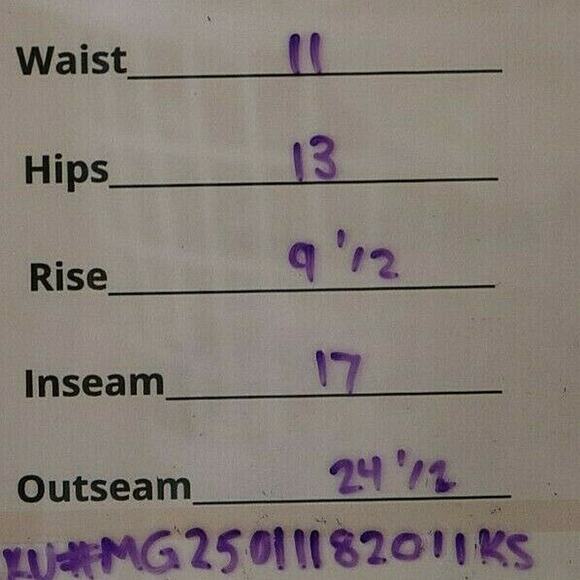 Waist 11
Hips 13
Rise 9 1/2
Inseam 17
Outseam 24 1/2
KU#MG25011182011KS